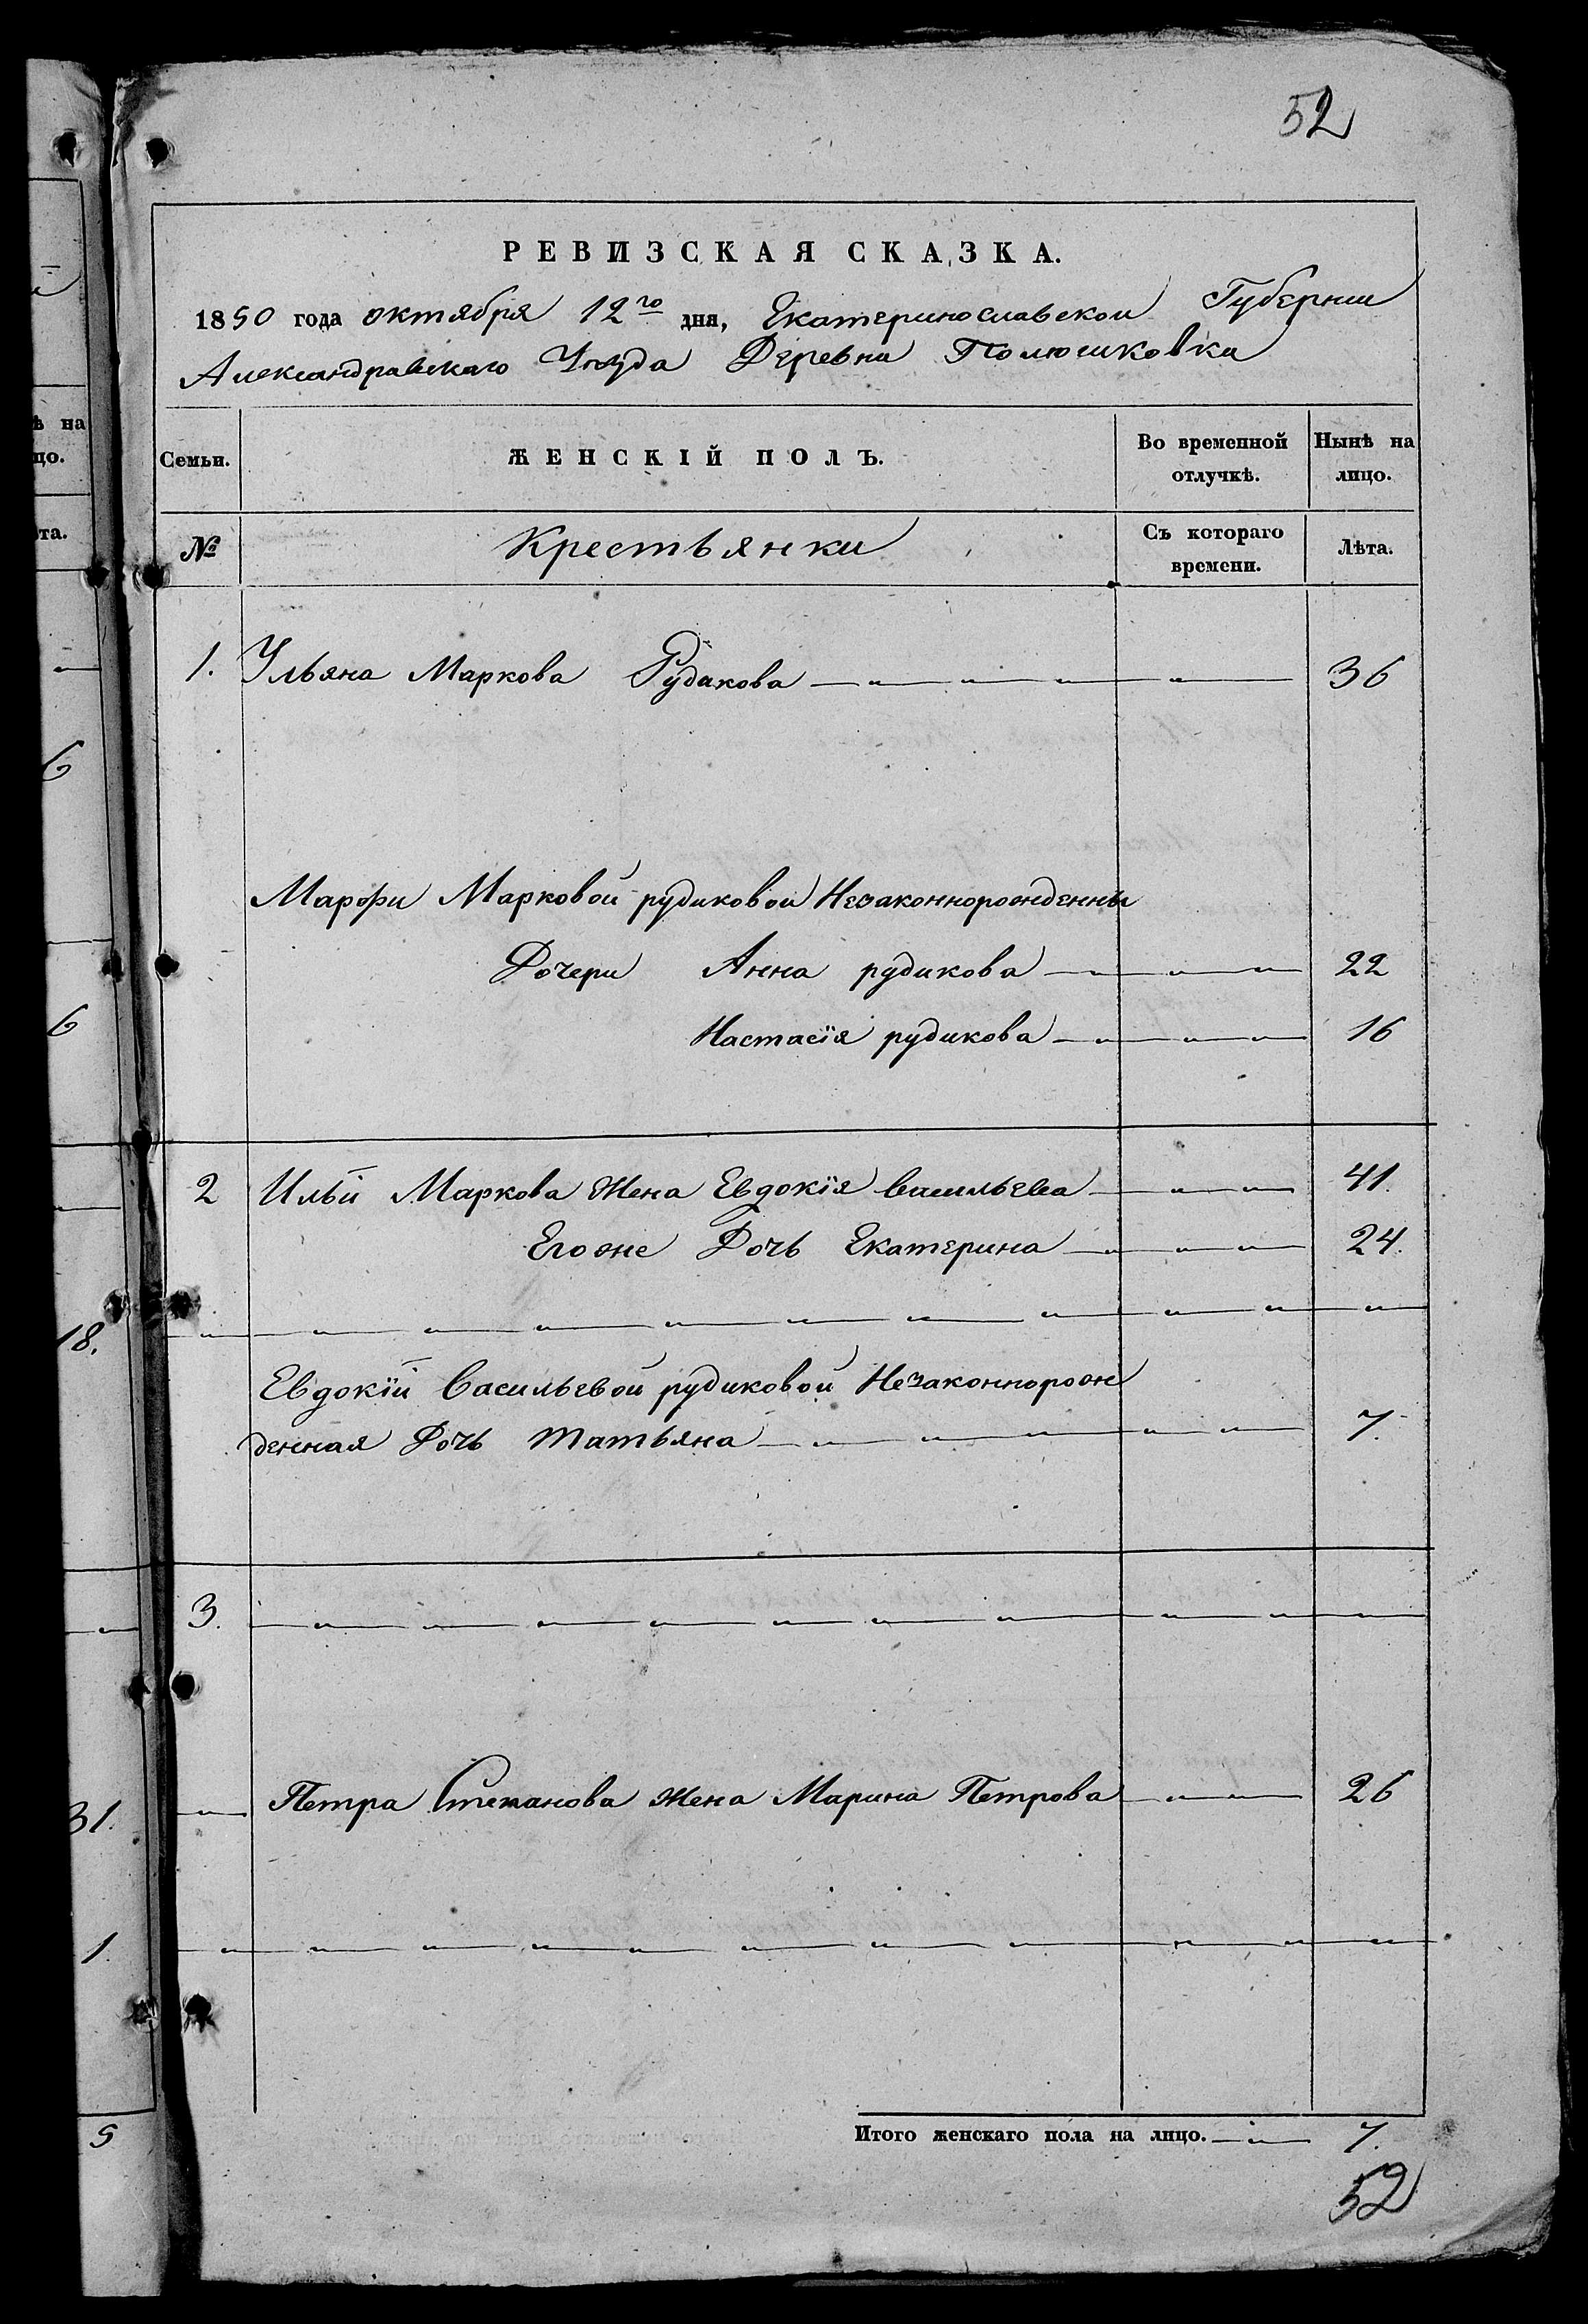 52
РЕВИЗСКАЯ СКАЗКА.
1850 года октября 12го дня, Екатеринославской Губернии
Александравскаго Уезда Деревни Полюшковки
Семьи. ЖЕНСКІЙ ПОЛЪ. Во временной отлучкѣ. Нынѣ на лицо.
№ Крестьянки Съ котораго времени. Лѣта.
1. Ульяна Маркова Рудикова 36
Марфи Марковой рудиковой Незаконнорожденны
Дочери Анна рудикова 22
Настасія рудикова 16
2 Ильи Маркова жена Евдокія Васильева 41.
Егоже Дочь Екатерина 24.
Евдокій Васильевой рудиковой Незаконнорож
денная Дочь Татьяна 7.
3.
Петра Степанова жена Марина Петрова 26
Итого женскаго пола на лицо. 7.
52
ѣ на
цо.
та.
6
6
18.
31.
1.
5